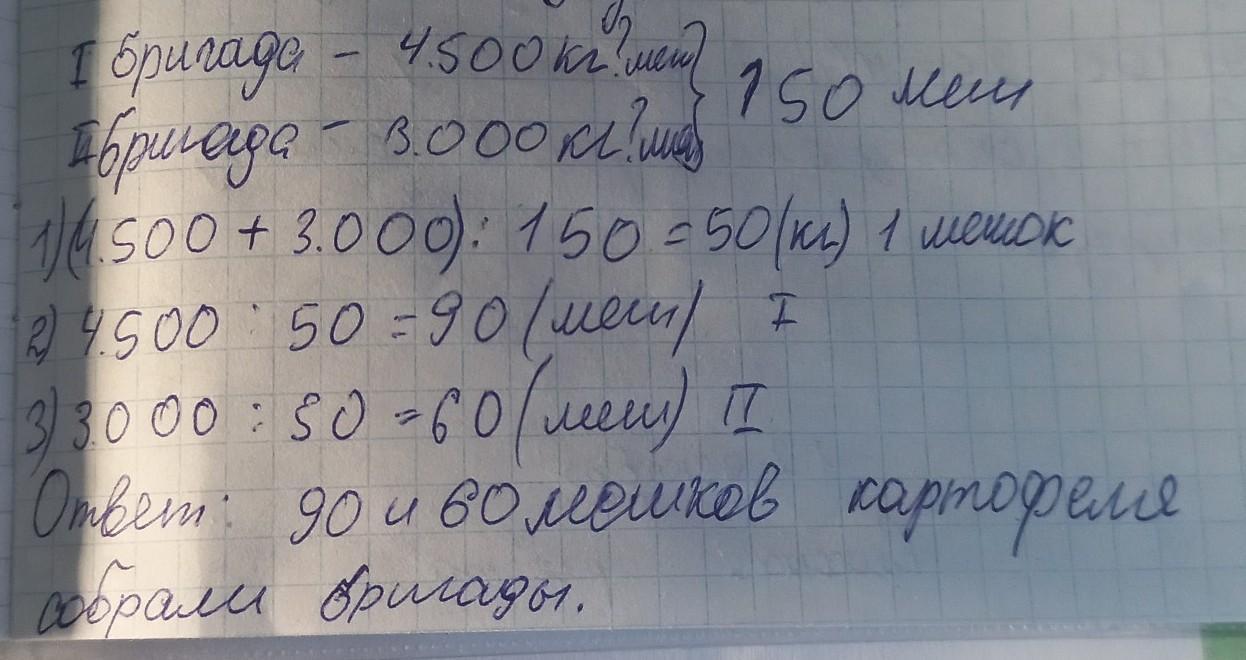 I бригада - 4.500 кг ? меш } 150 меш
II бригада - 3.000 кг ? меш
1) (4.500 + 3.000) : 150 = 50 (кг) 1 мешок
2) 4.500 : 50 = 90 (меш) I
3) 3.000 : 50 = 60 (меш) II
Ответ: 90 и 60 мешков картофеля
собрали бригады.